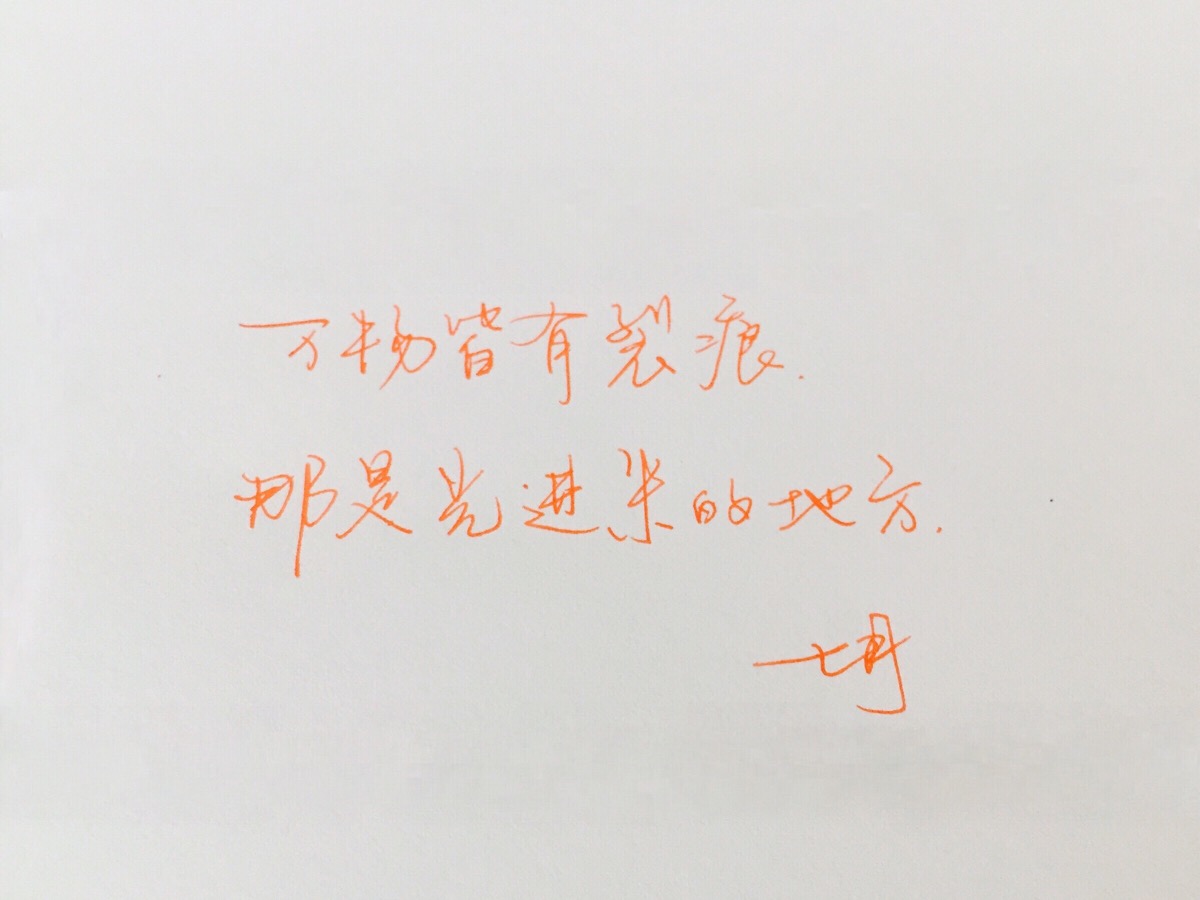 万物皆有裂痕.
那是光进来的地方.